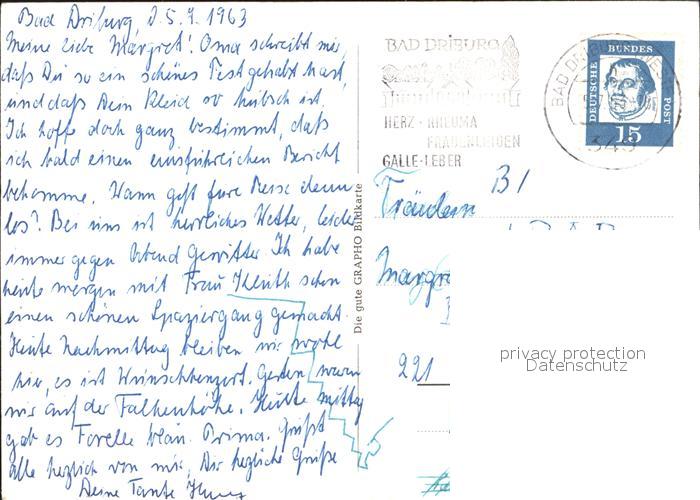 Bad Driburg, d. 5.7.1963
Meine liebe Margret! Oma schreibt mir,
daß Du so ein schönes Fest gehabt hast,
und daß Dein Kleid so hübsch ist.
Ich hoffe doch ganz bestimmt, daß
ich bald einen ausführlichen Bericht
bekomme. Wann geht eure Reise denn
los? Bei uns ist herrliches Wetter, leider
immer gegen Abend Gewitter. Ich habe
heute morgen mit Frau schon
einen schönen Spaziergang gemacht.
Heute Nachmittag bleiben wir wohl
hier, es ist Wunschkonzert. Gestern waren
wir auf der Falkenhöhe. Heute Mittag
gab es Forelle blau. Prima. Grüßt
alle herzlich von mir, Dir herzliche Grüße
Deine Tante
Die gute GRAPHO Bildkarte
BAD DRIBURG
HERZ · RHEUMA
FRAUENLEIDEN
GALLE · LEBER
BAD DRIBURG
349
DEUTSCHE BUNDES POST
15
Fräulein
Margre
221
privacy protection
Datenschutz